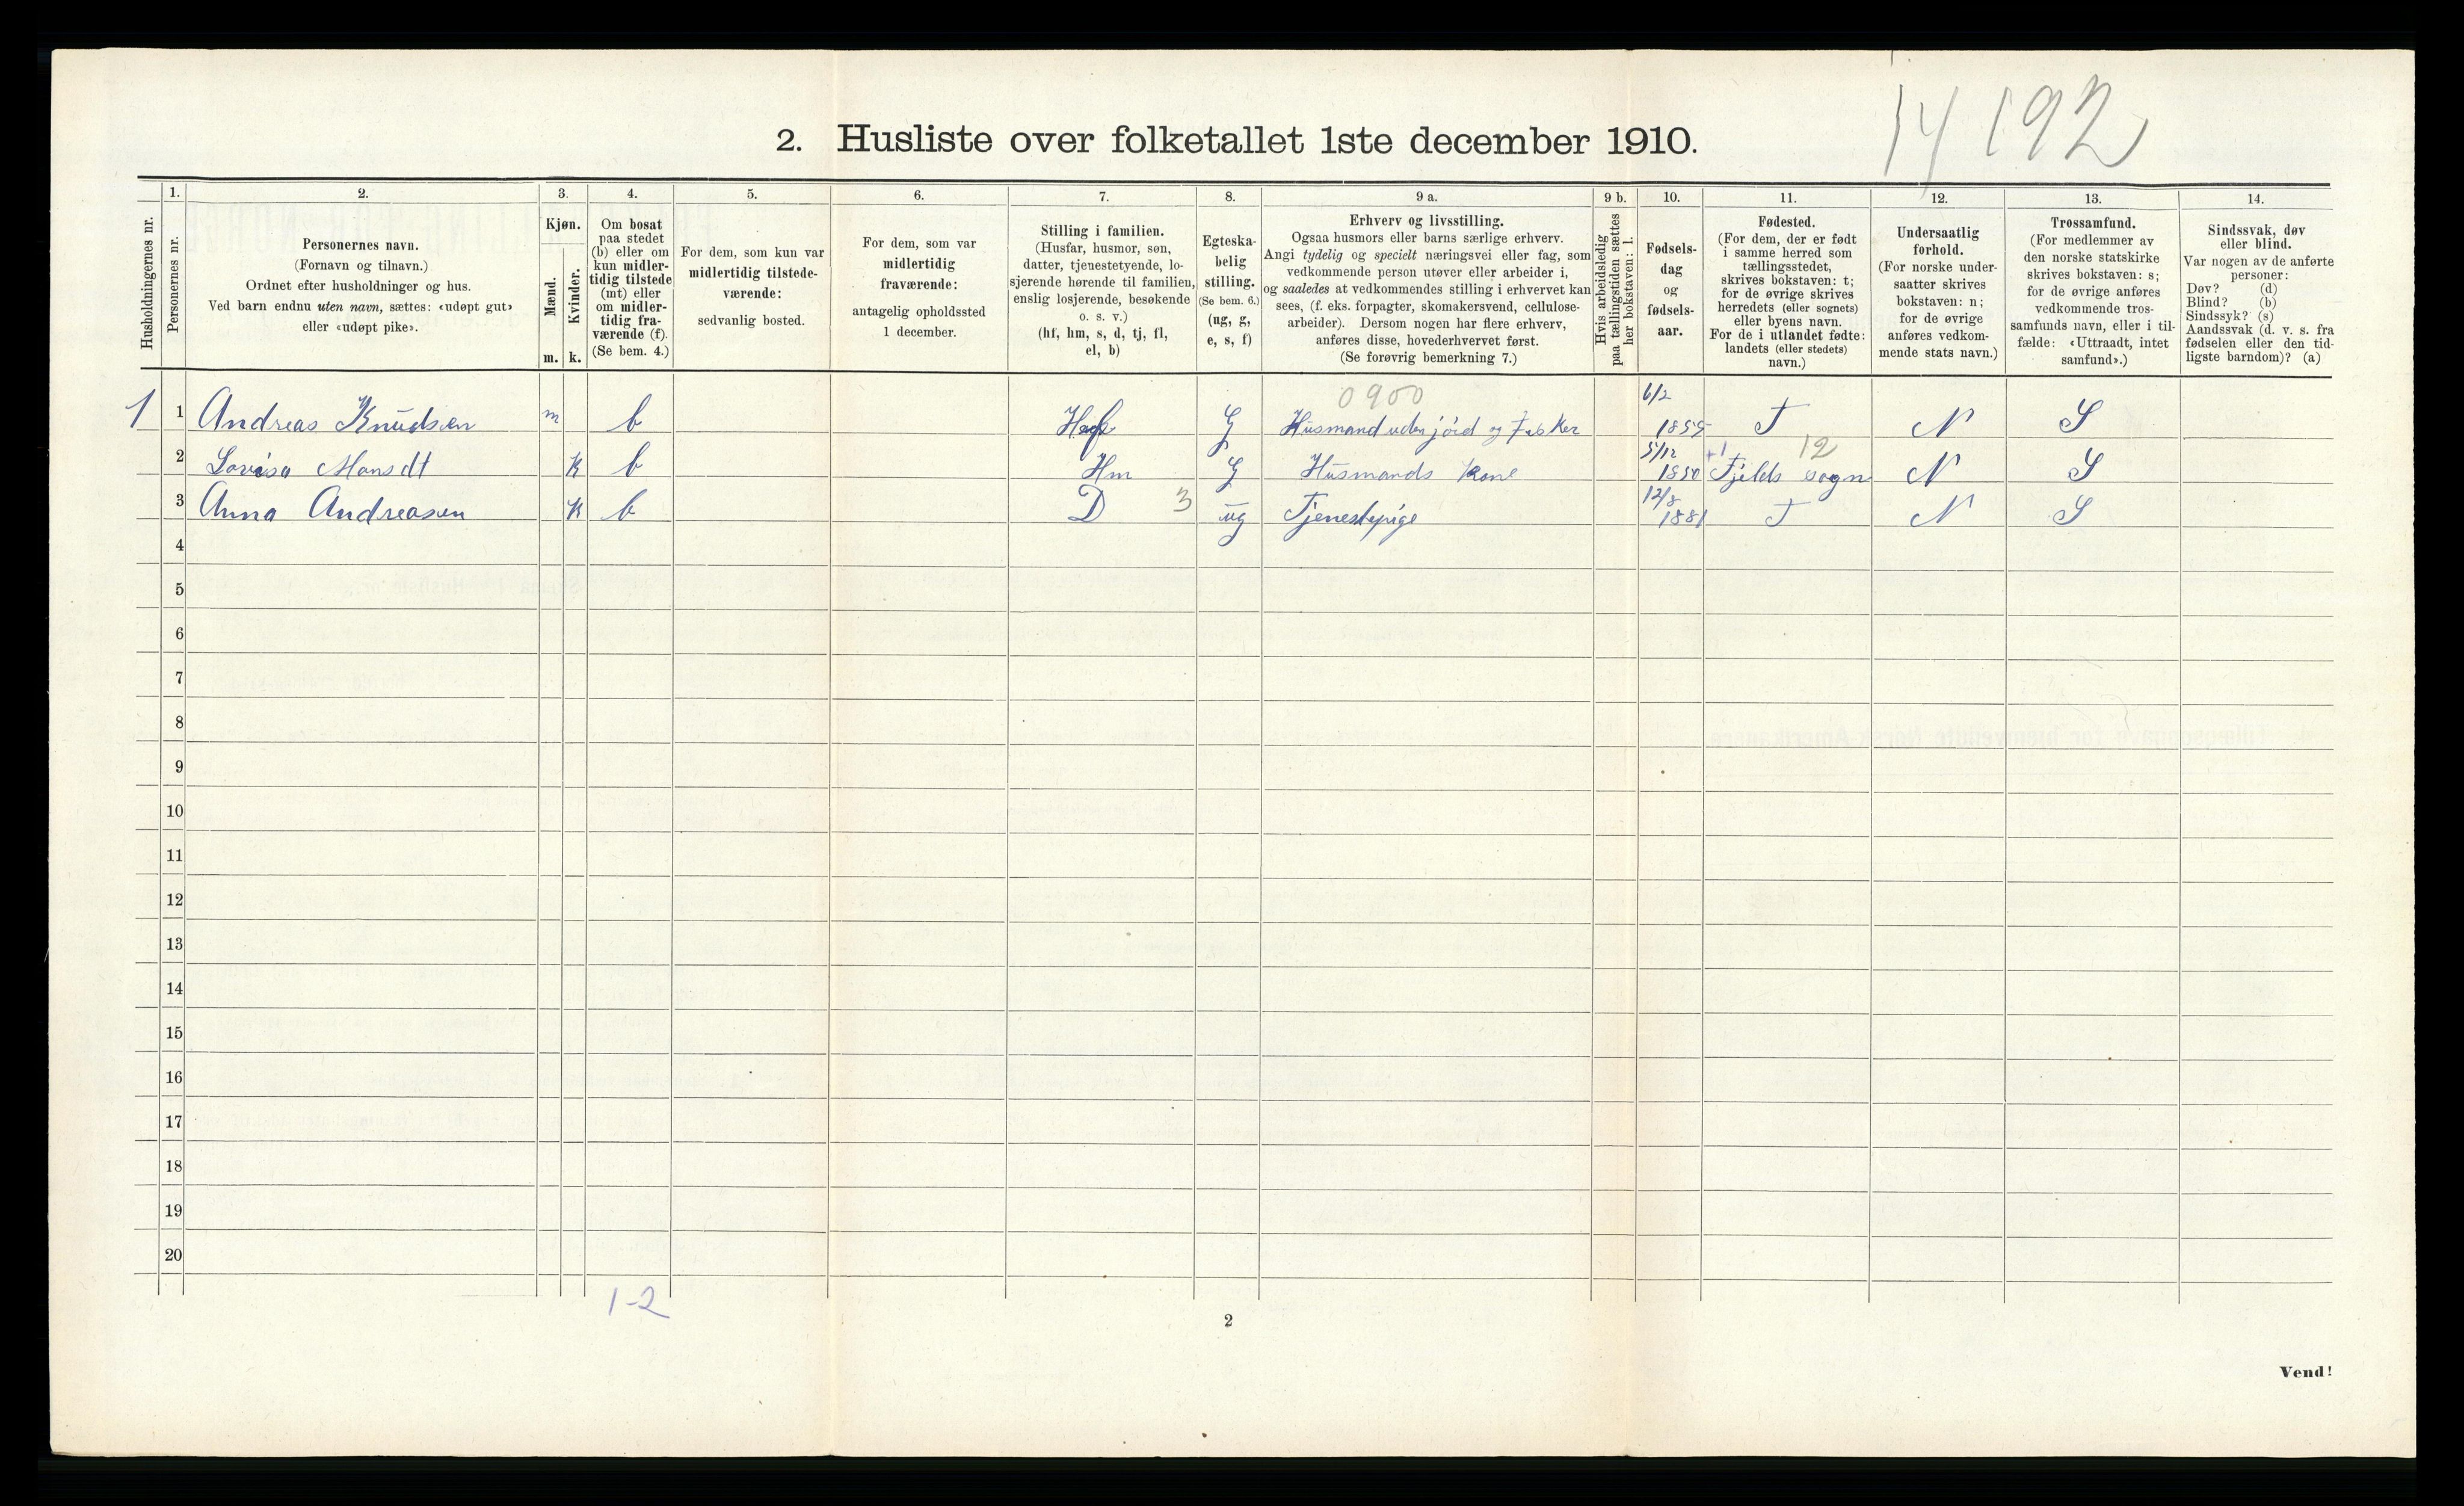 14 192
2. Husliste over folketallet 1ste december 1910.
Husholdningernes nr.
1.
Personernes nr.
2.
Personernes navn.
(Fornavn og tilnavn.)
Ordnet efter husholdninger og hus.
Ved barn endnu uten navn, sættes: «udøpt gut»
eller «udøpt pike».
3.
Kjøn.
Mænd.
Kvinder.
m. k.
4.
Om bosat
paa stedet
(b) eller om
kun midler-
tidig tilstede
(mt) eller
om midler-
tidig fra-
værende (f).
(Se bem. 4.)
5.
For dem, som kun var
midlertidig tilstede-
værende:
sedvanlig bosted.
6.
For dem, som var
midlertidig
fraværende:
antagelig opholdssted
1 december.
7.
Stilling i familien.
(Husfar, husmor, søn,
datter, tjenestetyende, lo-
sjerende hørende til familien,
enslig losjerende, besøkende
o. s. v.)
(hf, hm, s, d, tj, fl,
el, b)
8.
Egteska-
belig
stilling.
(Se bem. 6.)
(ug, g,
e, s, f)
9 a.
Erhverv og livsstilling.
Ogsaa husmors eller barns særlige erhverv.
Angi tydelig og specielt næringsvei eller fag, som
vedkommende person utøver eller arbeider i,
og saaledes at vedkommendes stilling i erhvervet kan
sees, (f. eks. forpagter, skomakersvend, cellulose-
arbeider). Dersom nogen har flere erhverv,
anføres disse, hovederhvervet først.
(Se forøvrig bemerkning 7.)
9 b.
Hvis arbeidsledig
paa tællingstiden sættes
her bokstaven: l.
10.
Fødsels-
dag
og
fødsels-
aar.
11.
Fødested.
(For dem, der er født
i samme herred som
tællingsstedet,
skrives bokstaven: t;
for de øvrige skrives
herredets (eller sognets)
eller byens navn.
For de i utlandet fødte:
landets (eller stedets)
navn.)
12.
Undersaatlig
forhold.
(For norske under-
saatter skrives
bokstaven: n;
for de øvrige
anføres vedkom-
mende stats navn.)
13.
Trossamfund.
(For medlemmer av
den norske statskirke
skrives bokstaven: s;
for de øvrige anføres
vedkommende tros-
samfunds navn, eller i til-
fælde: «Uttraadt, intet
samfund».)
14.
Sindssvak, døv
eller blind.
Var nogen av de anførte
personer:
Døv? (d)
Blind? (b)
Sindssyk? (s)
Aandssvak (d. v. s. fra
fødselen eller den tid-
ligste barndom)? (a)
0900
1 1 Andreas Knudsen m b Hf G Husmand uden jord og Fisker 6/2 T N S
2 Lovisa Monsdt K b Hm G Husmands kone 5/12 1850 +1 12 Fjelds sogn N S
3 Anna Andreasen K b D 3 ug Tjenestepige 12/8 1881 T N S
4
5
6
7
8
9
10
11
12
13
14
15
16
17
18
19
20
1-2
2
Vend!